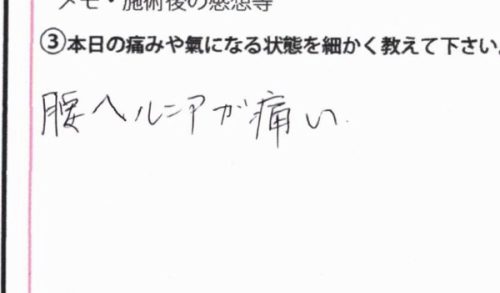 メモ・施術後の感想等
③本日の痛みや氣になる状態を細かく教えて下さい。
腰ヘルニアが痛い.